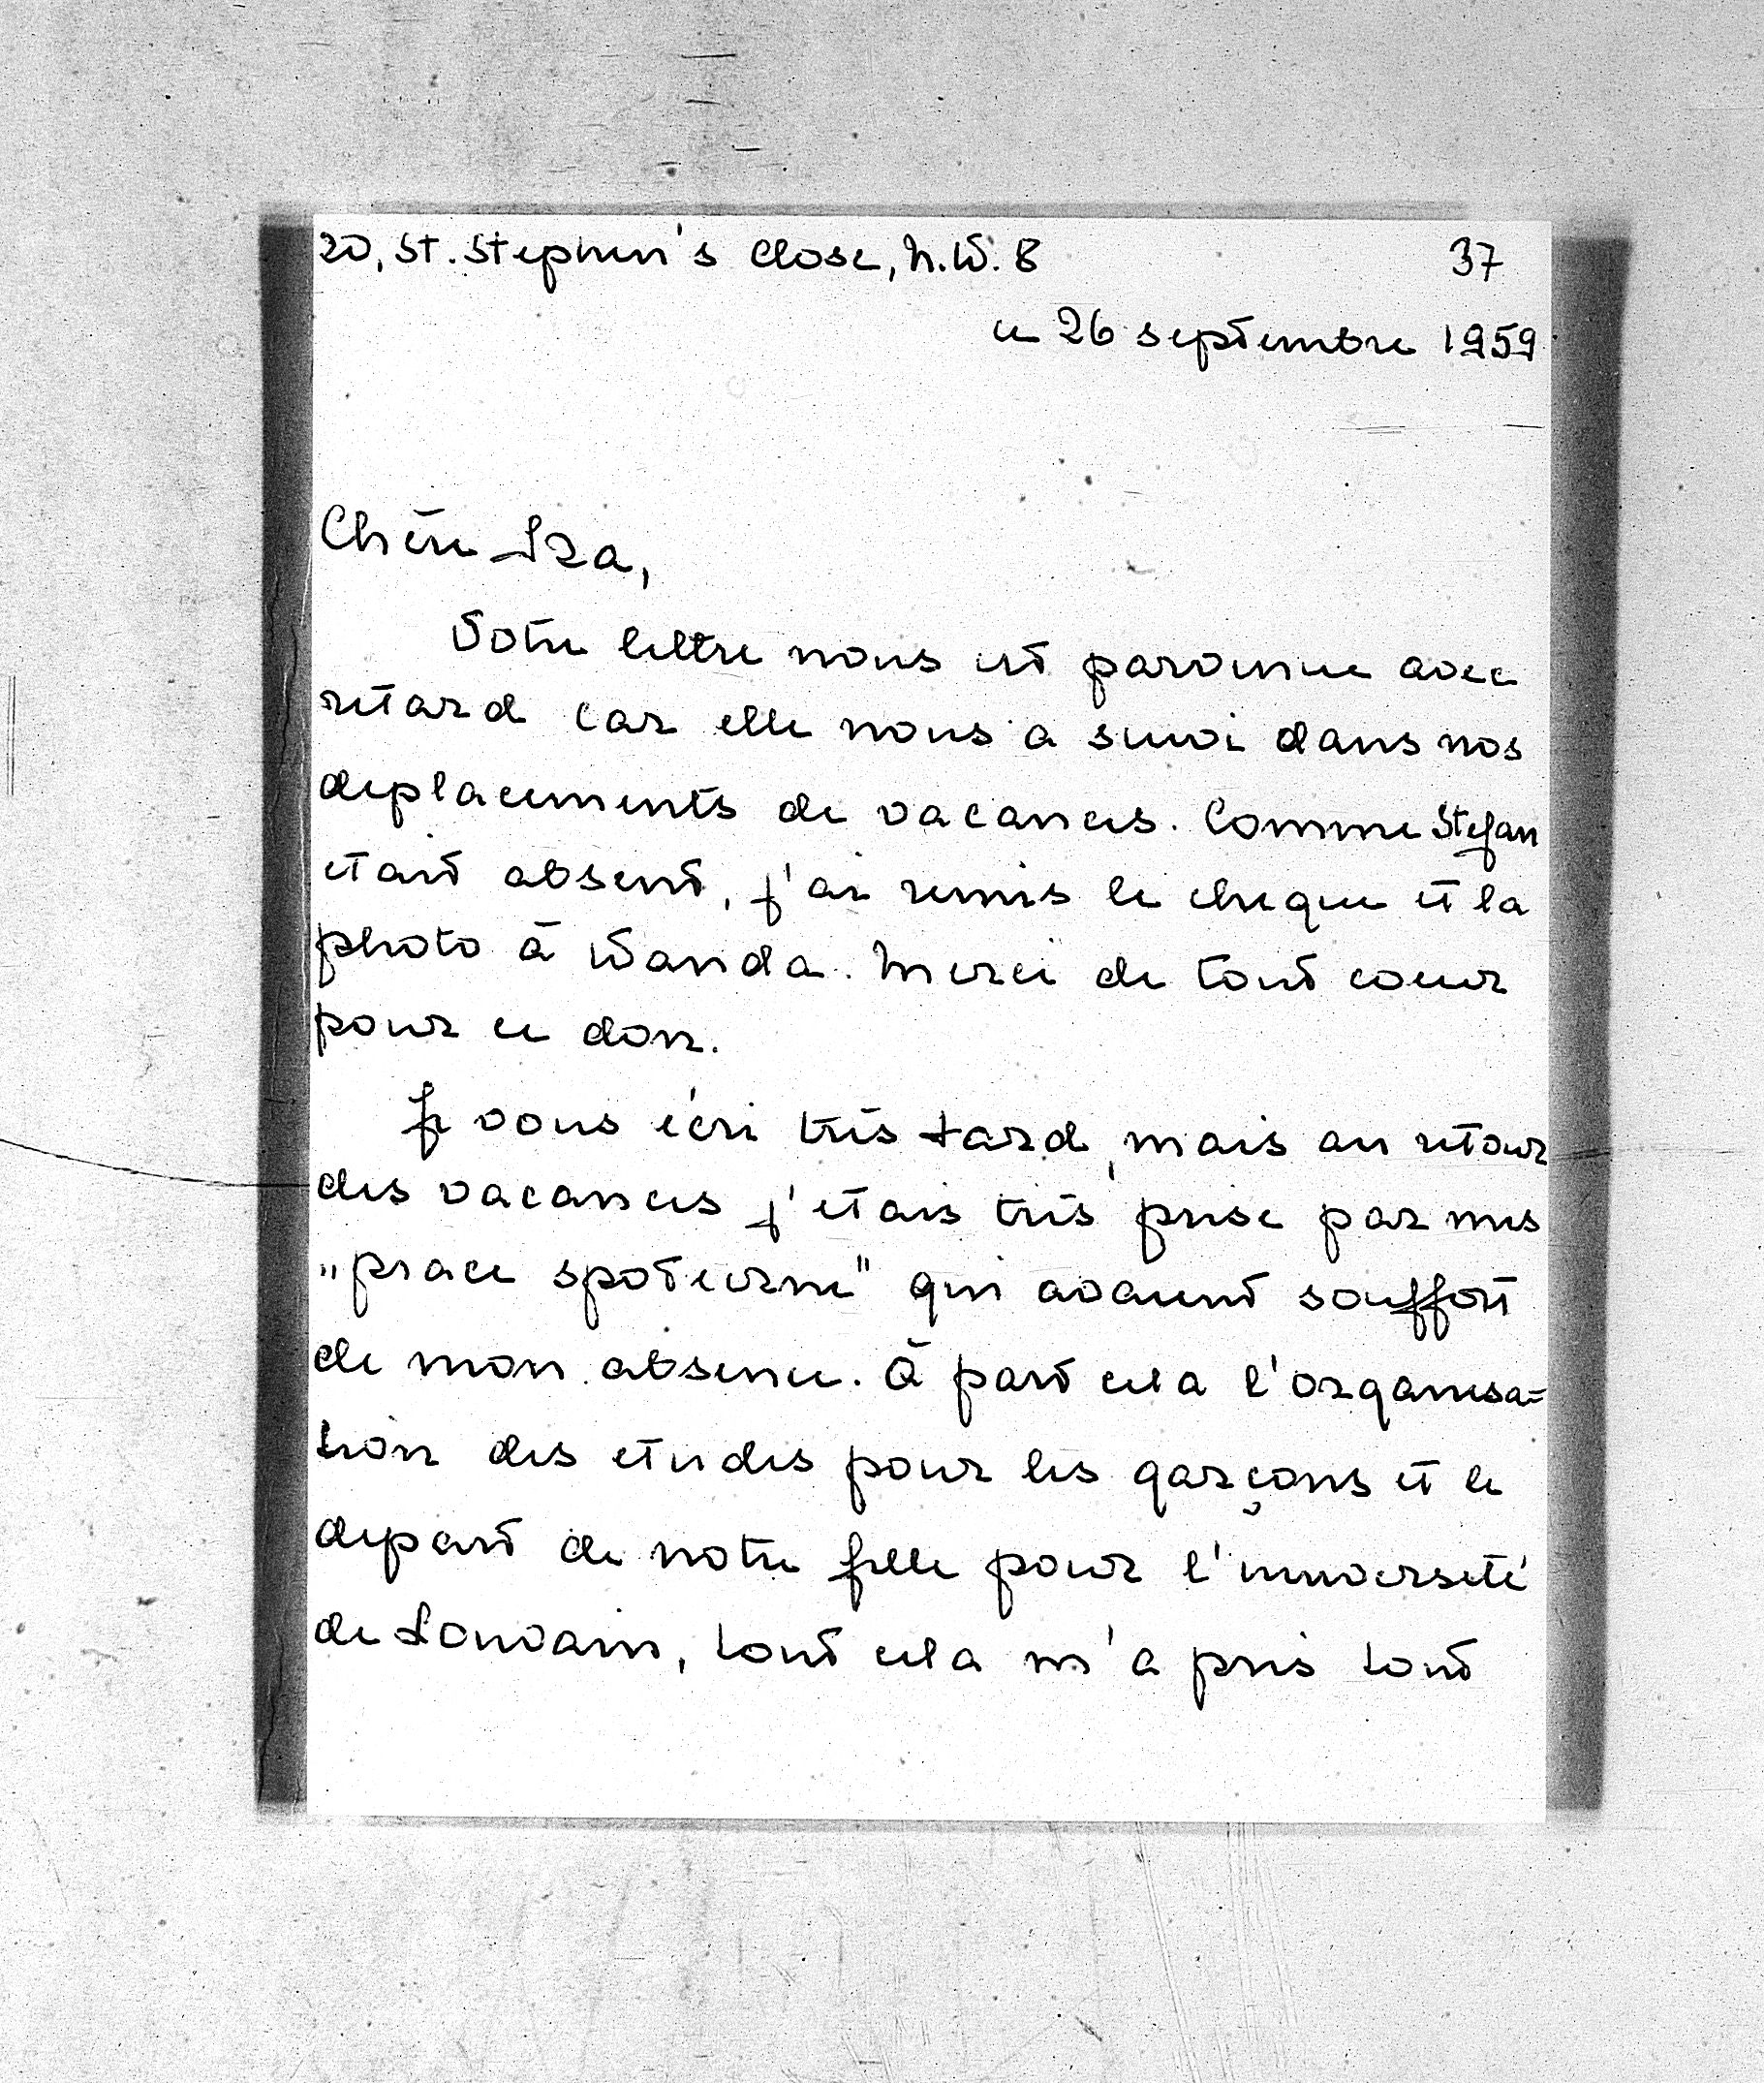 20, St. Stephen's Close, N.W. 8
37
ce 26 septembre 1959
Chère Iza,
Votre lettre nous est parvenue avec
retard car elle nous a suivi dans nos
deplacements de vacances. Comme Stefan
etait absent, j'ai remis le cheque et la
photo à Wanda. Merci de tout coeur
pour ce don.
Je vous écri très tard, mais au retour
des vacances j'etais très prise par mes
„prace społeczne" qui avaient souffert
de mon absence. À part cela l'organisa=
tion des etudes pour les garçons et le
depart de notre fille pour l'université
de Louvain, tout cela m'a pris tout